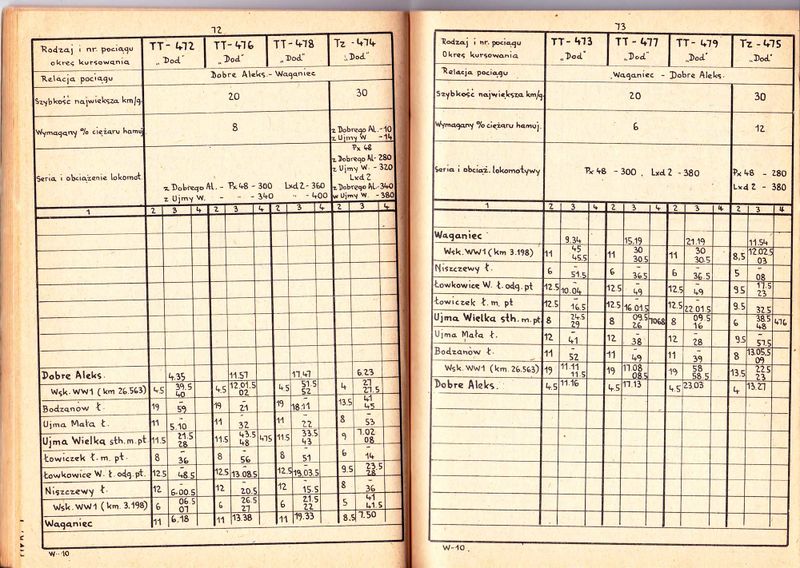 72
Rodzaj i nr. pociągu TT-472 TT-476 TT-478 Tz-474
Okręg kursowania „Dod" „Dod" „Dod" „Dod"
Relacja pociągu Dobre Aleks.-Waganiec
Szybkość największa km/g. 20 30
Wymagany % ciężaru hamuj. 8 z Dobrego Al.-10
z Ujmy W -14
Px 48
z Dobrego Al-280
z Ujmy W. -320
Seria i obciążenie lokomot. Lxd 2
z Dobrego Al.- Px 48-300 Lxd 2-360 z Dobrego Al-340
z Ujmy W. - - 340 - -400 w Ujmy W.-380
1 2 3 4 2 3 4 2 3 4 2 3 4
Dobre Aleks. 4.35 11.57 17.47 6.23
Wsk. WW1 (km 26.563) 4.5 39.5 40 4.5 12.01.5 02 4.5 51.5 52 4 27 27.5
Bodzanów ł. 19 – 59 19 – 21 19 – 18.11 13.5 41 45
Ujma Mała ł. 11 – 5.10 11 – 32 11 – 22 8 – 53
Ujma Wielka sth.m.pt 11.5 21.5 28 11.5 43.5 48 475 11.5 33.5 43 9 7.02 08
Łowiczek ł. m. pt. 8 – 36 8 – 56 8 – 51 6 – 14
Łowkowice W. ł. odg. pt. 12.5 – 48.5 12.5 – 13.08.5 12.5 – 19.03.5 9.5 23.5 28
Niszczewy ł. 12 – 6.00.5 12 – 20.5 12 – 15.5 8 – 36
Wsk. WW1 (km 3.198) 6 06.5 07 6 26.5 27 6 21.5 22 5 41 41.5
Waganiec 11 6.18 11 13.38 11 19.33 8.5 7.50
W-10
73
Rodzaj i nr. pociągu TT-473 TT-477 TT-479 Tz-475
Okręg kursowania „Dod" „Dod" „Dod" „Dod"
Relacja pociągu Waganiec - Dobre Aleks.
Szybkość największa km/g. 20 30
Wymagany % ciężaru hamuj. 6 12
Seria i obciąż. lokomotywy Px 48 -300, Lxd 2-380 Px 48 - 280
Lxd 2 - 380
1 2 3 4 2 3 4 2 3 4 2 3 4
Waganiec 9.34 15.19 21.19 11.54
Wsk. WW1 (km 3.198) 11 45 45.5 11 30 30.5 11 30 30.5 8,5 12.02.5 03
Niszczewy ł. 6 – 51.5 6 – 36.5 6 – 36.5 5 – 08
Łowkowice W. ł. odg. pt 12.5 – 10.04 12.5 – 49 12.5 – 49 9.5 17.5 23
Łowiczek ł. m. pt 12.5 – 16.5 12.5 – 16.01.5 12.5 – 22.01.5 9.5 – 32.5
Ujma Wielka sth. m. pt. 8 24.5 29 8 09.5 26 7068 8 09.5 16 6 38.5 48 476
Ujma Mała ł. 12 – 41 12 – 38 12 – 28 9.5 – 57.5
Bodzanów ł. 11 – 52 11 – 49 11 – 39 8 13.05.5 09
Wsk. WW1 (km 26.563) 19 11.11 11.5 19 17.08 08.5 19 58 58.5 13.5 22.5 23
Dobre Aleks. 4.5 11.16 4.5 17.13 4.5 23.03 4 13.27
W-10.